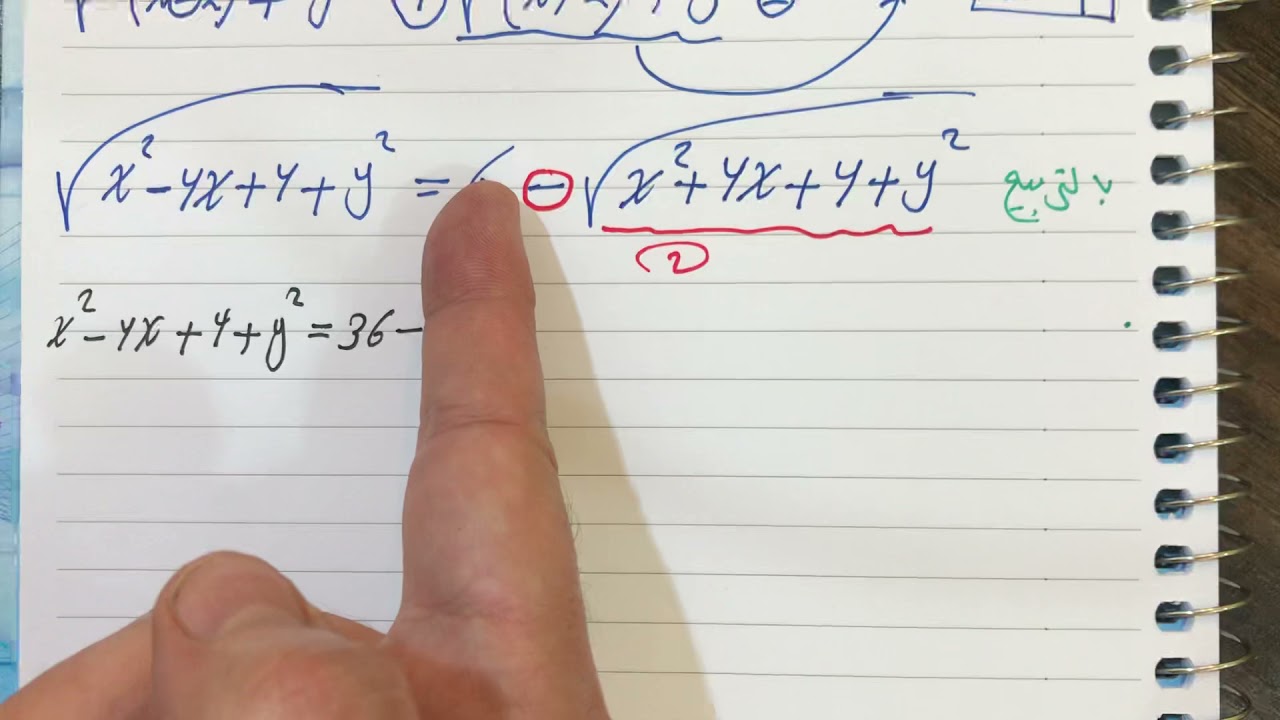 √x² - 4x + 4 + y² = 6 - √x² + 4x + 4 + y² بالتربيع
2
x² - 4x + 4 + y² = 36 -